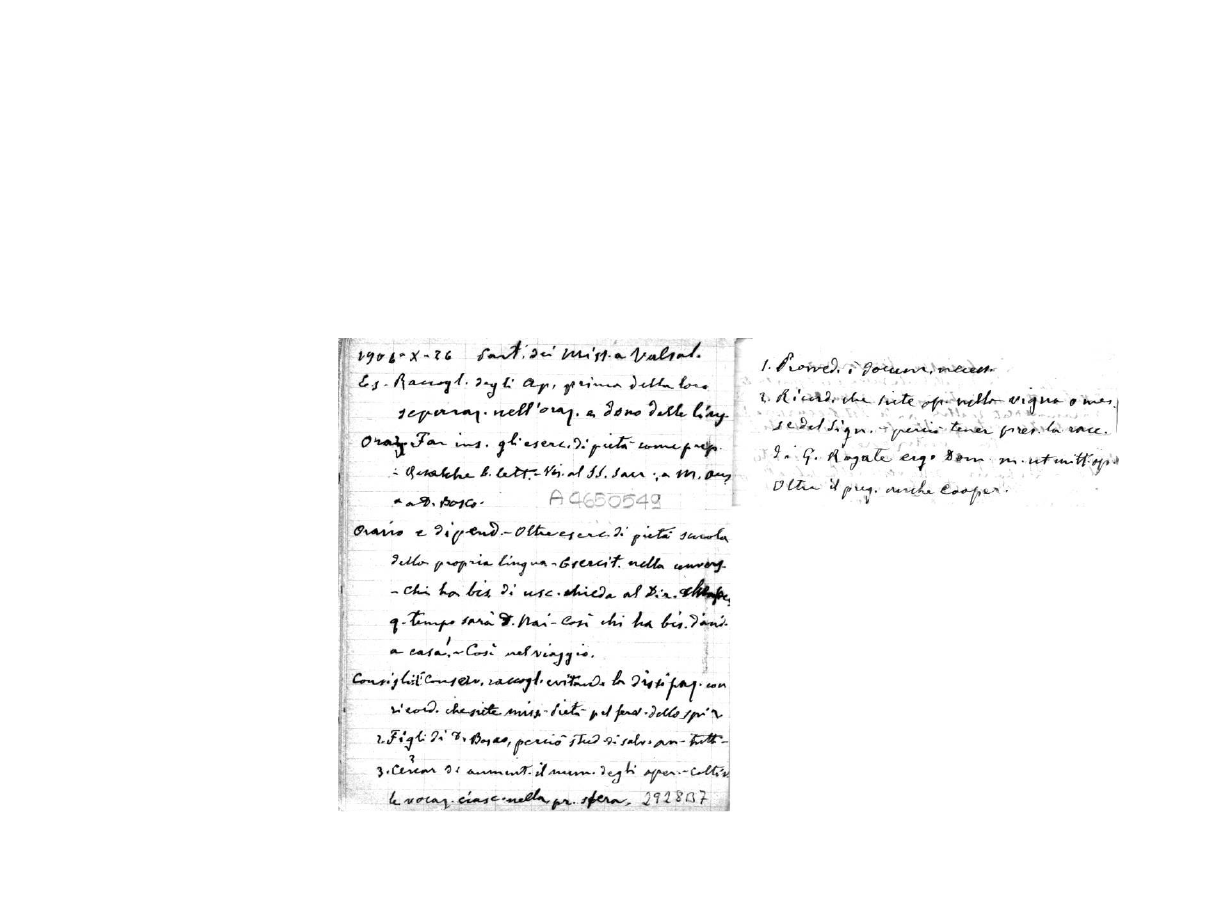 1906-X-26 Part. dei Miss. a Valsal.
Es. Raccogl. degli Ap. prima della loro
separaz. nell'oraz. a dono delle ling.
Oraz. Far ins. gli eserc. di pietà come prep.
- Qualche b. lett. - Vis. al SS. Sacr. a M. Aus
e a D. Bosco.
A4650549
Orario e dipend. - Oltre eserc. di pietà scuola
della propria lingua - Esercit. nella convers.
- Chi ha bis. di usc. chieda al Dir.
q. tempo sarà D. Rai - Così chi ha bis. d'and.
a casa! - Così nel viaggio.
Consigli: 1. Conserv. raccogl. evitando la dissipaz. con
ricord. che siete miss. pel
2. Figli di D. Bosco, perciò stud. di salv. an. tutt-
3. Cercar di aument. il num. degli oper. - Coltiv
le vocaz. ciasc. nella pr. sfera. 2928B7
1. Provved. i docum. necess.
2. Ricord. che siete op. nella vigna o mes.
se del Sign. - perciò tener pres. la racc.
di G. Rogate ergo Dom. m. ut mitt. op.
Oltre il preg. anche cooper.